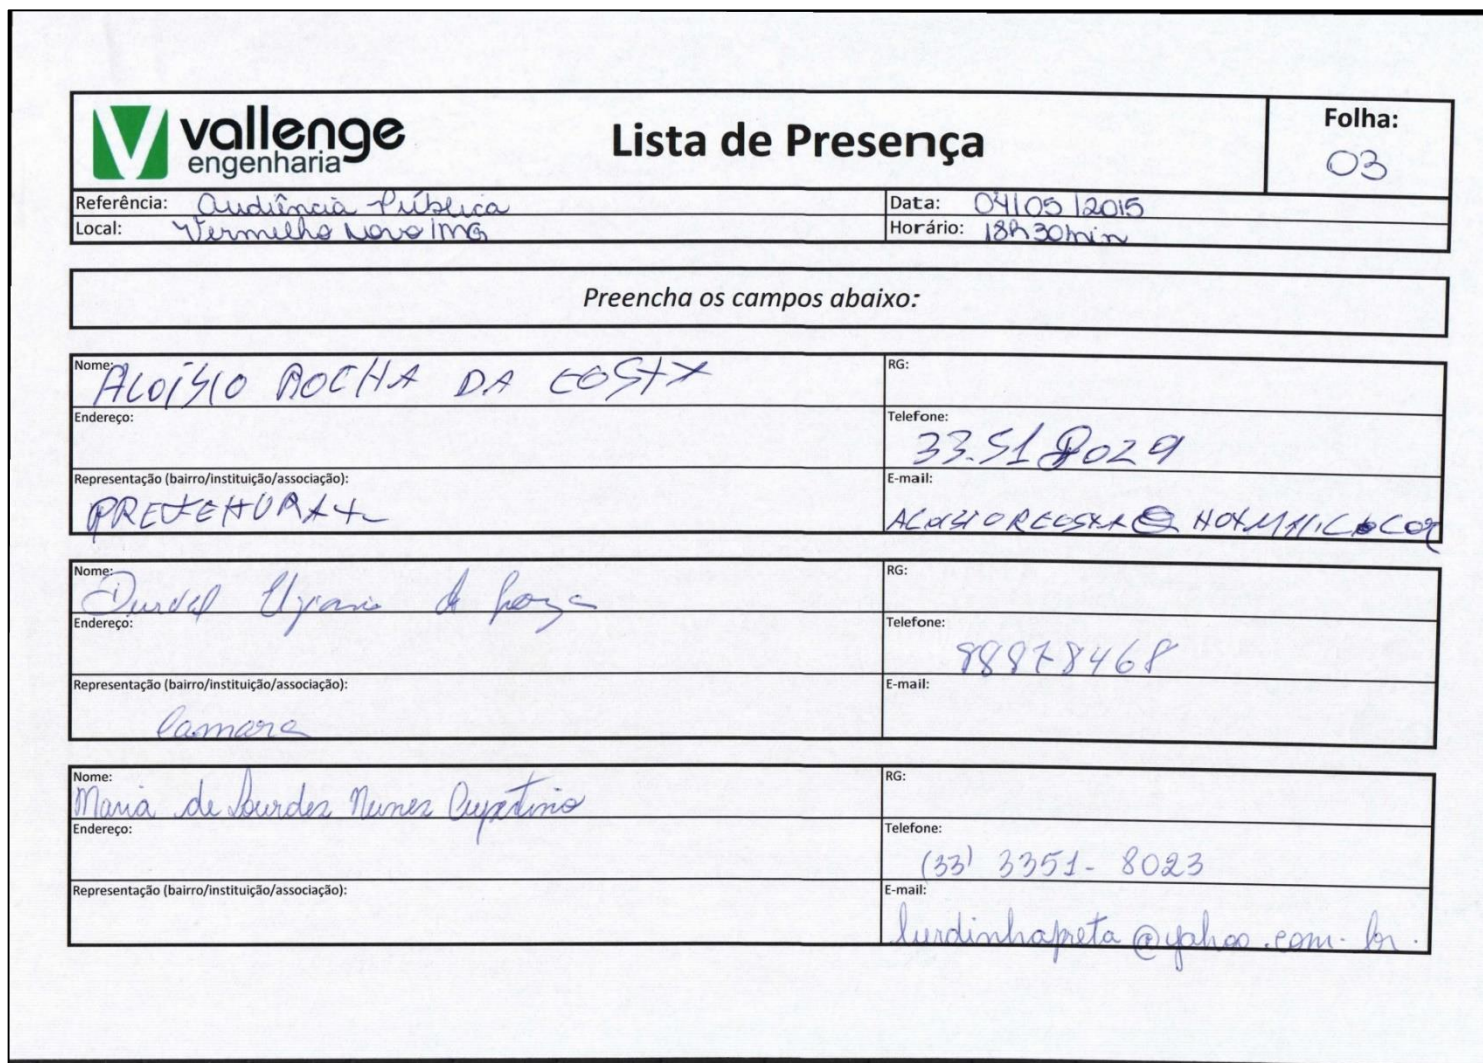 vallenge
engenharia
Lista de Presença
Folha:
03
Referência: Audiência Pública
Data: 04/05/2015
Local: Vermelho Novo/MG
Horário: 18h30min
Preencha os campos abaixo:
Nome: ALOÍSIO ROCHA DA COSTA
RG:
Endereço:
Telefone: 33.51 8029
Representação (bairro/instituição/associação):
E-mail:
PREFEITURA
Nome: Durval de Souza
RG:
Endereço:
Telefone: 88878468
Representação (bairro/instituição/associação):
E-mail:
Camara
Nome: Maria de Lourdes Nunes Cupertino
RG:
Endereço:
Telefone: (33) 3351-8023
Representação (bairro/instituição/associação):
E-mail: lurdinhapreta@yahoo.com.br.